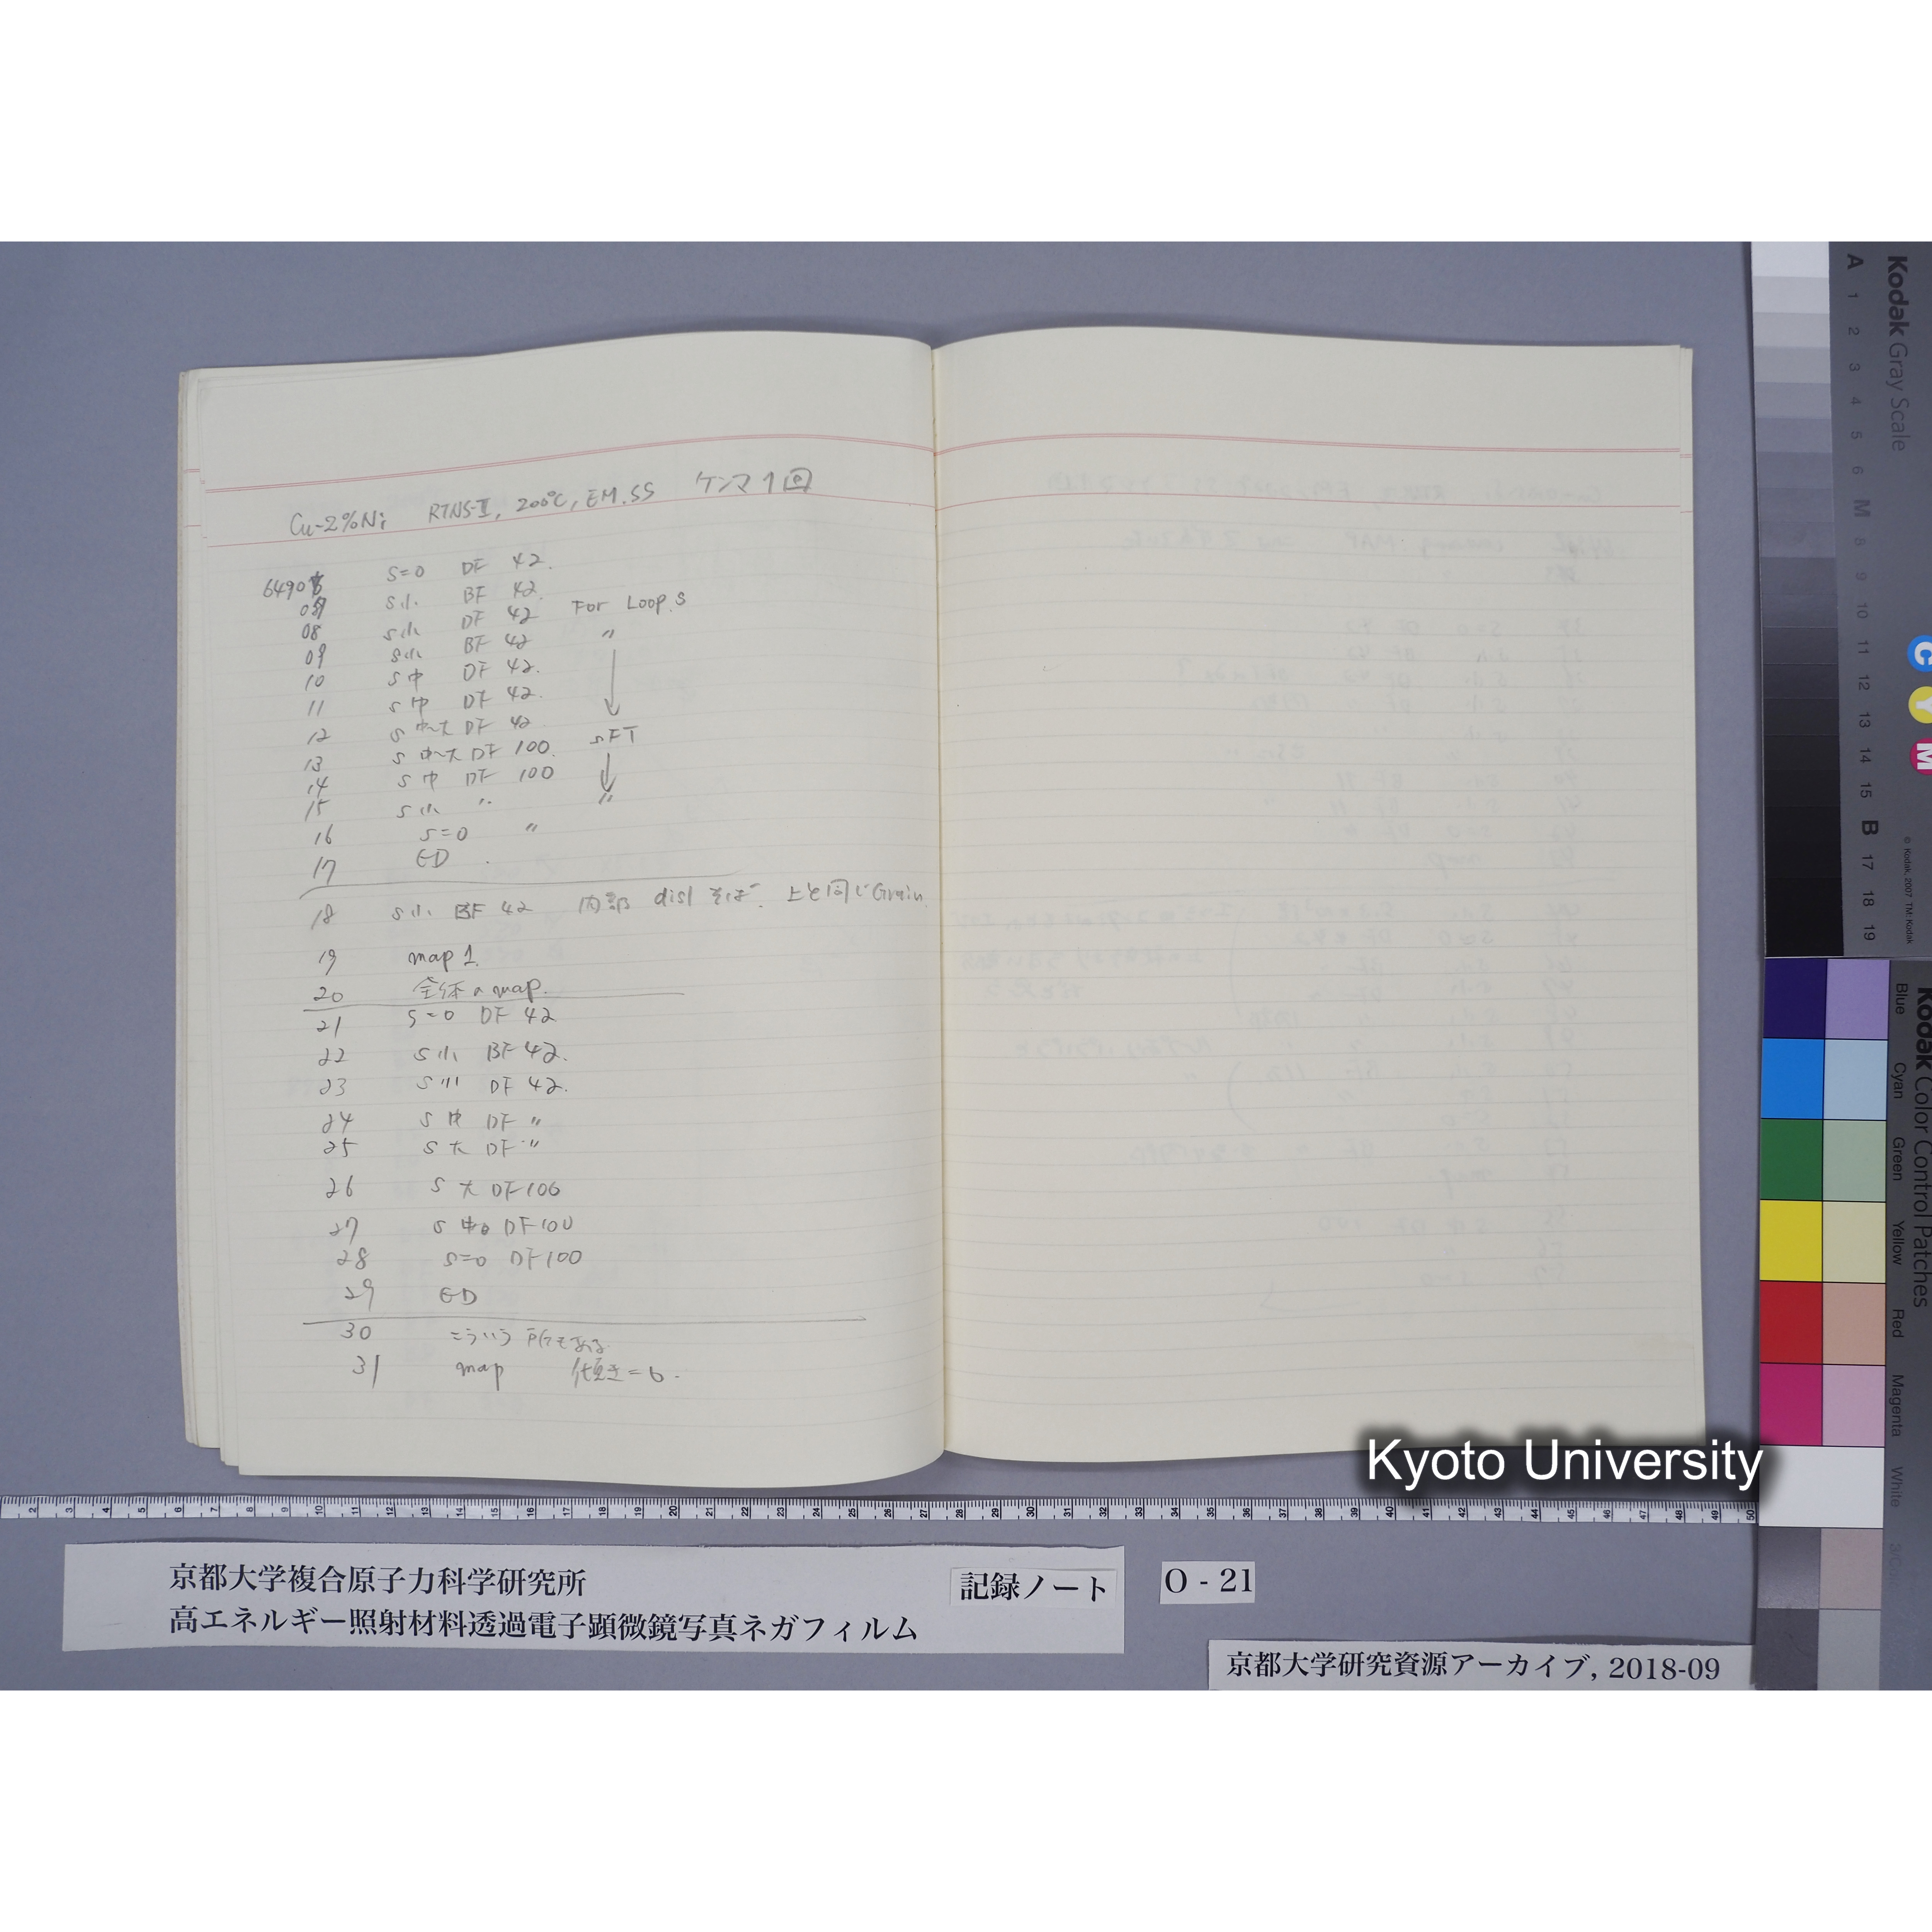 Cu-2%Ni RTNS-II, 200℃, EM.SS ケンマ1回
64906 S=0 DF 42.
07 S小 BF 42.
08 S小 DF 42 For Loop.S
09 S小 BF 42 〃
10 S中 DF 42.
11 S中 DF 42.
12 S中~大 DF 42
13 S中~大 DF 100. SFT
14 S中 DF 100
15 S小 〃 〃
16 S=0 〃
17 ED
18 S小 BF 42 内部 disl そば. 上と同じGrain.
19 map 1.
20 全体のmap.
21 S=0 DF 42
22 S小 BF 42.
23 S小 DF 42.
24 S中 DF 〃
25 S大 DF 〃
26 S大 DF100
27 S中 DF100
28 S=0 DF100
29 ED
30 こういう所もある
31 map 傾き=6.
Kyoto University
京都大学複合原子力科学研究所
高エネルギー照射材料透過電子顕微鏡写真ネガフィルム
記録ノート
O - 21
京都大学研究資源アーカイブ, 2018-09
Kodak Gray Scale
A 1 2 3 4 5 6 M 8 9 10 11 12 13 14 15 B 17 18 19
C Y M
© Kodak, 2007 TM: Kodak
Kodak Color Control Patches
Blue Cyan Green Yellow Red Magenta White
2 3 4 5 6 7 8 9 10 11 12 13 14 15 16 17 18 19 20 21 22 23 24 25 26 27 28 29 30 31 32 33 34 35 36 37 38 39 40 41 42 43 44 45 46 47 48 49 50